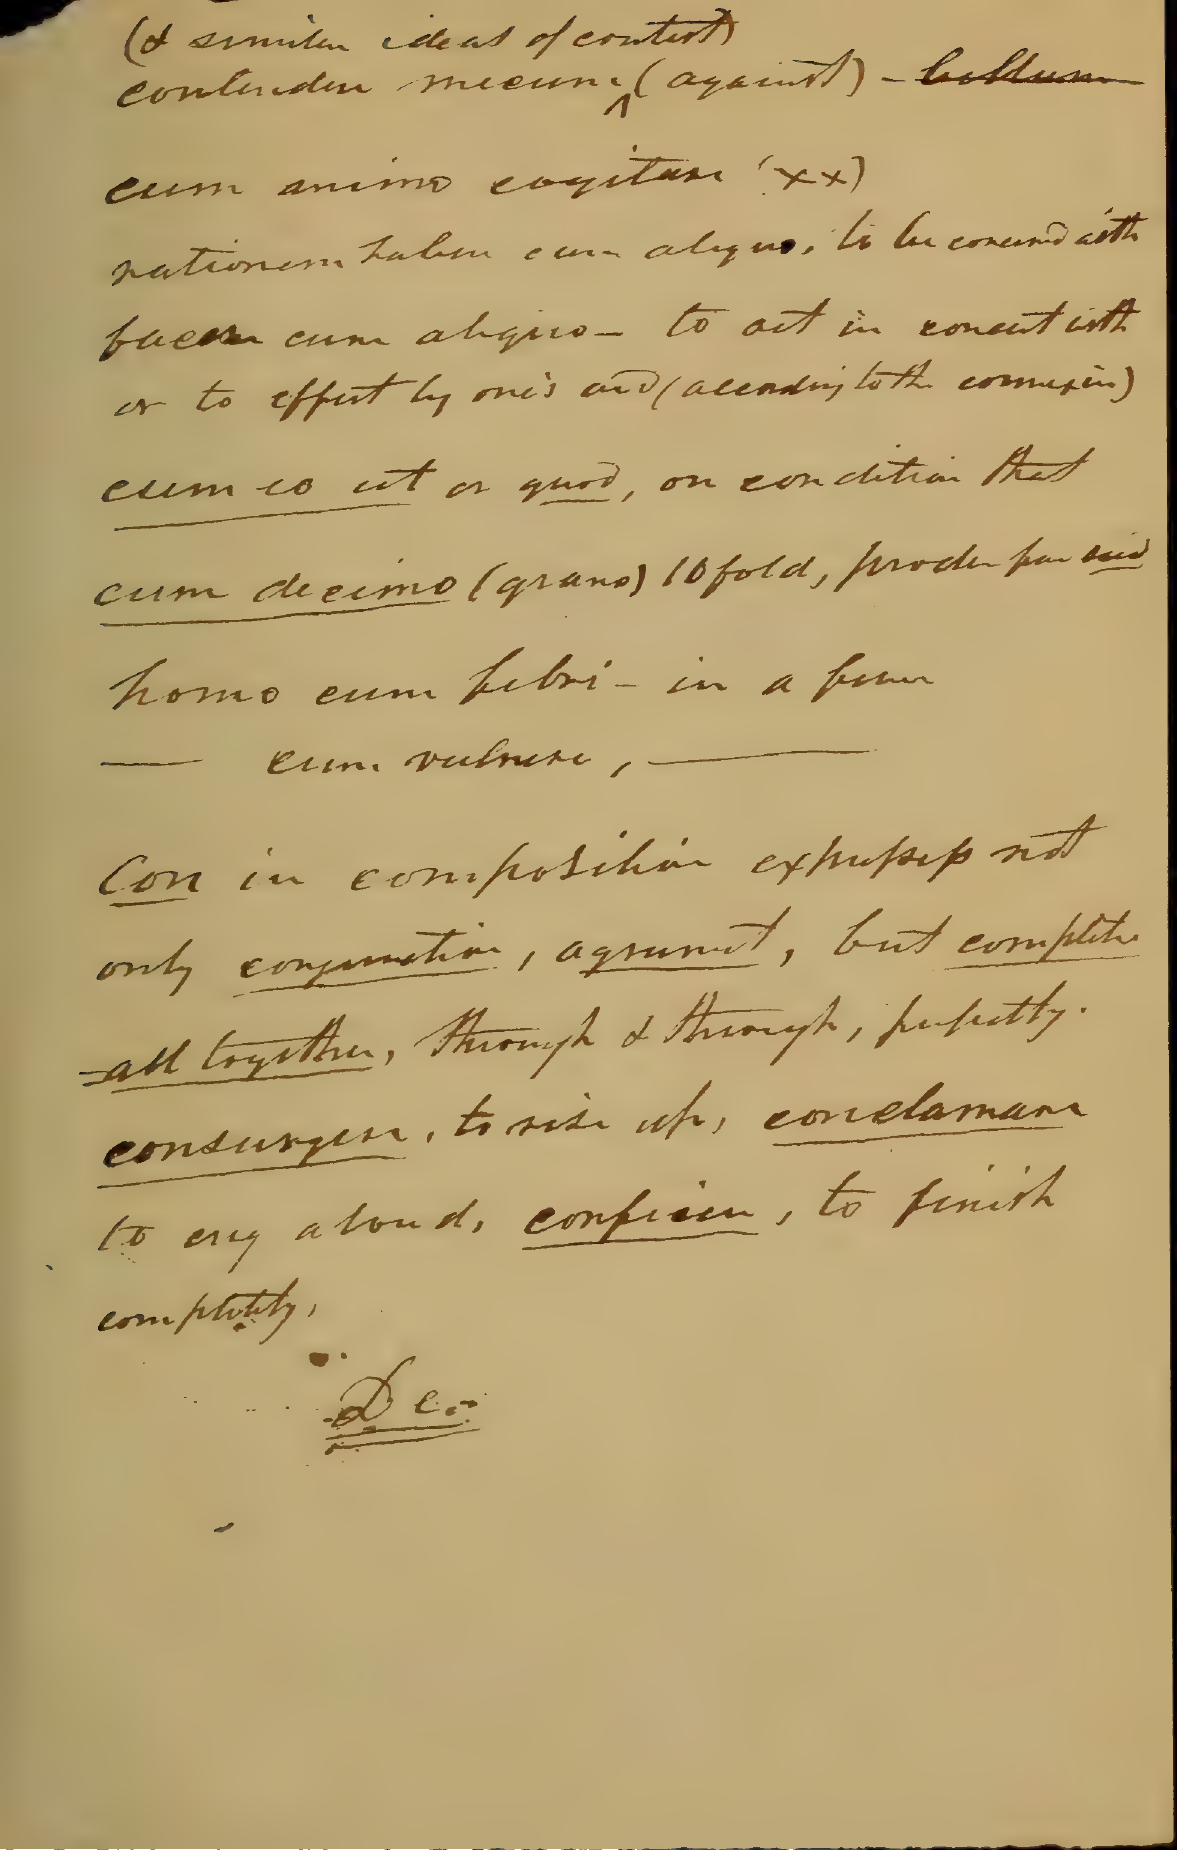 (& similar ideas of contest)
contendere mecum (against) - bellum
cum animo cogitare (xx)
rationem habere cum aliquo, to be concerned with
facere cum aliquo - to act in concert with
or to effect by one's aid (according to the connexion)
cum eo ut or quod, on condition that
cum decimo (grano) 10 fold,
homo cum febri - in a fever
— cum vulnere, —
Con in composition expresses not
only conjunction, agreement, but complete
-all together, through & through, perfectly.
consurgere, to rise up, conclamare
to cry aloud, conficere, to finish
completely,
De.